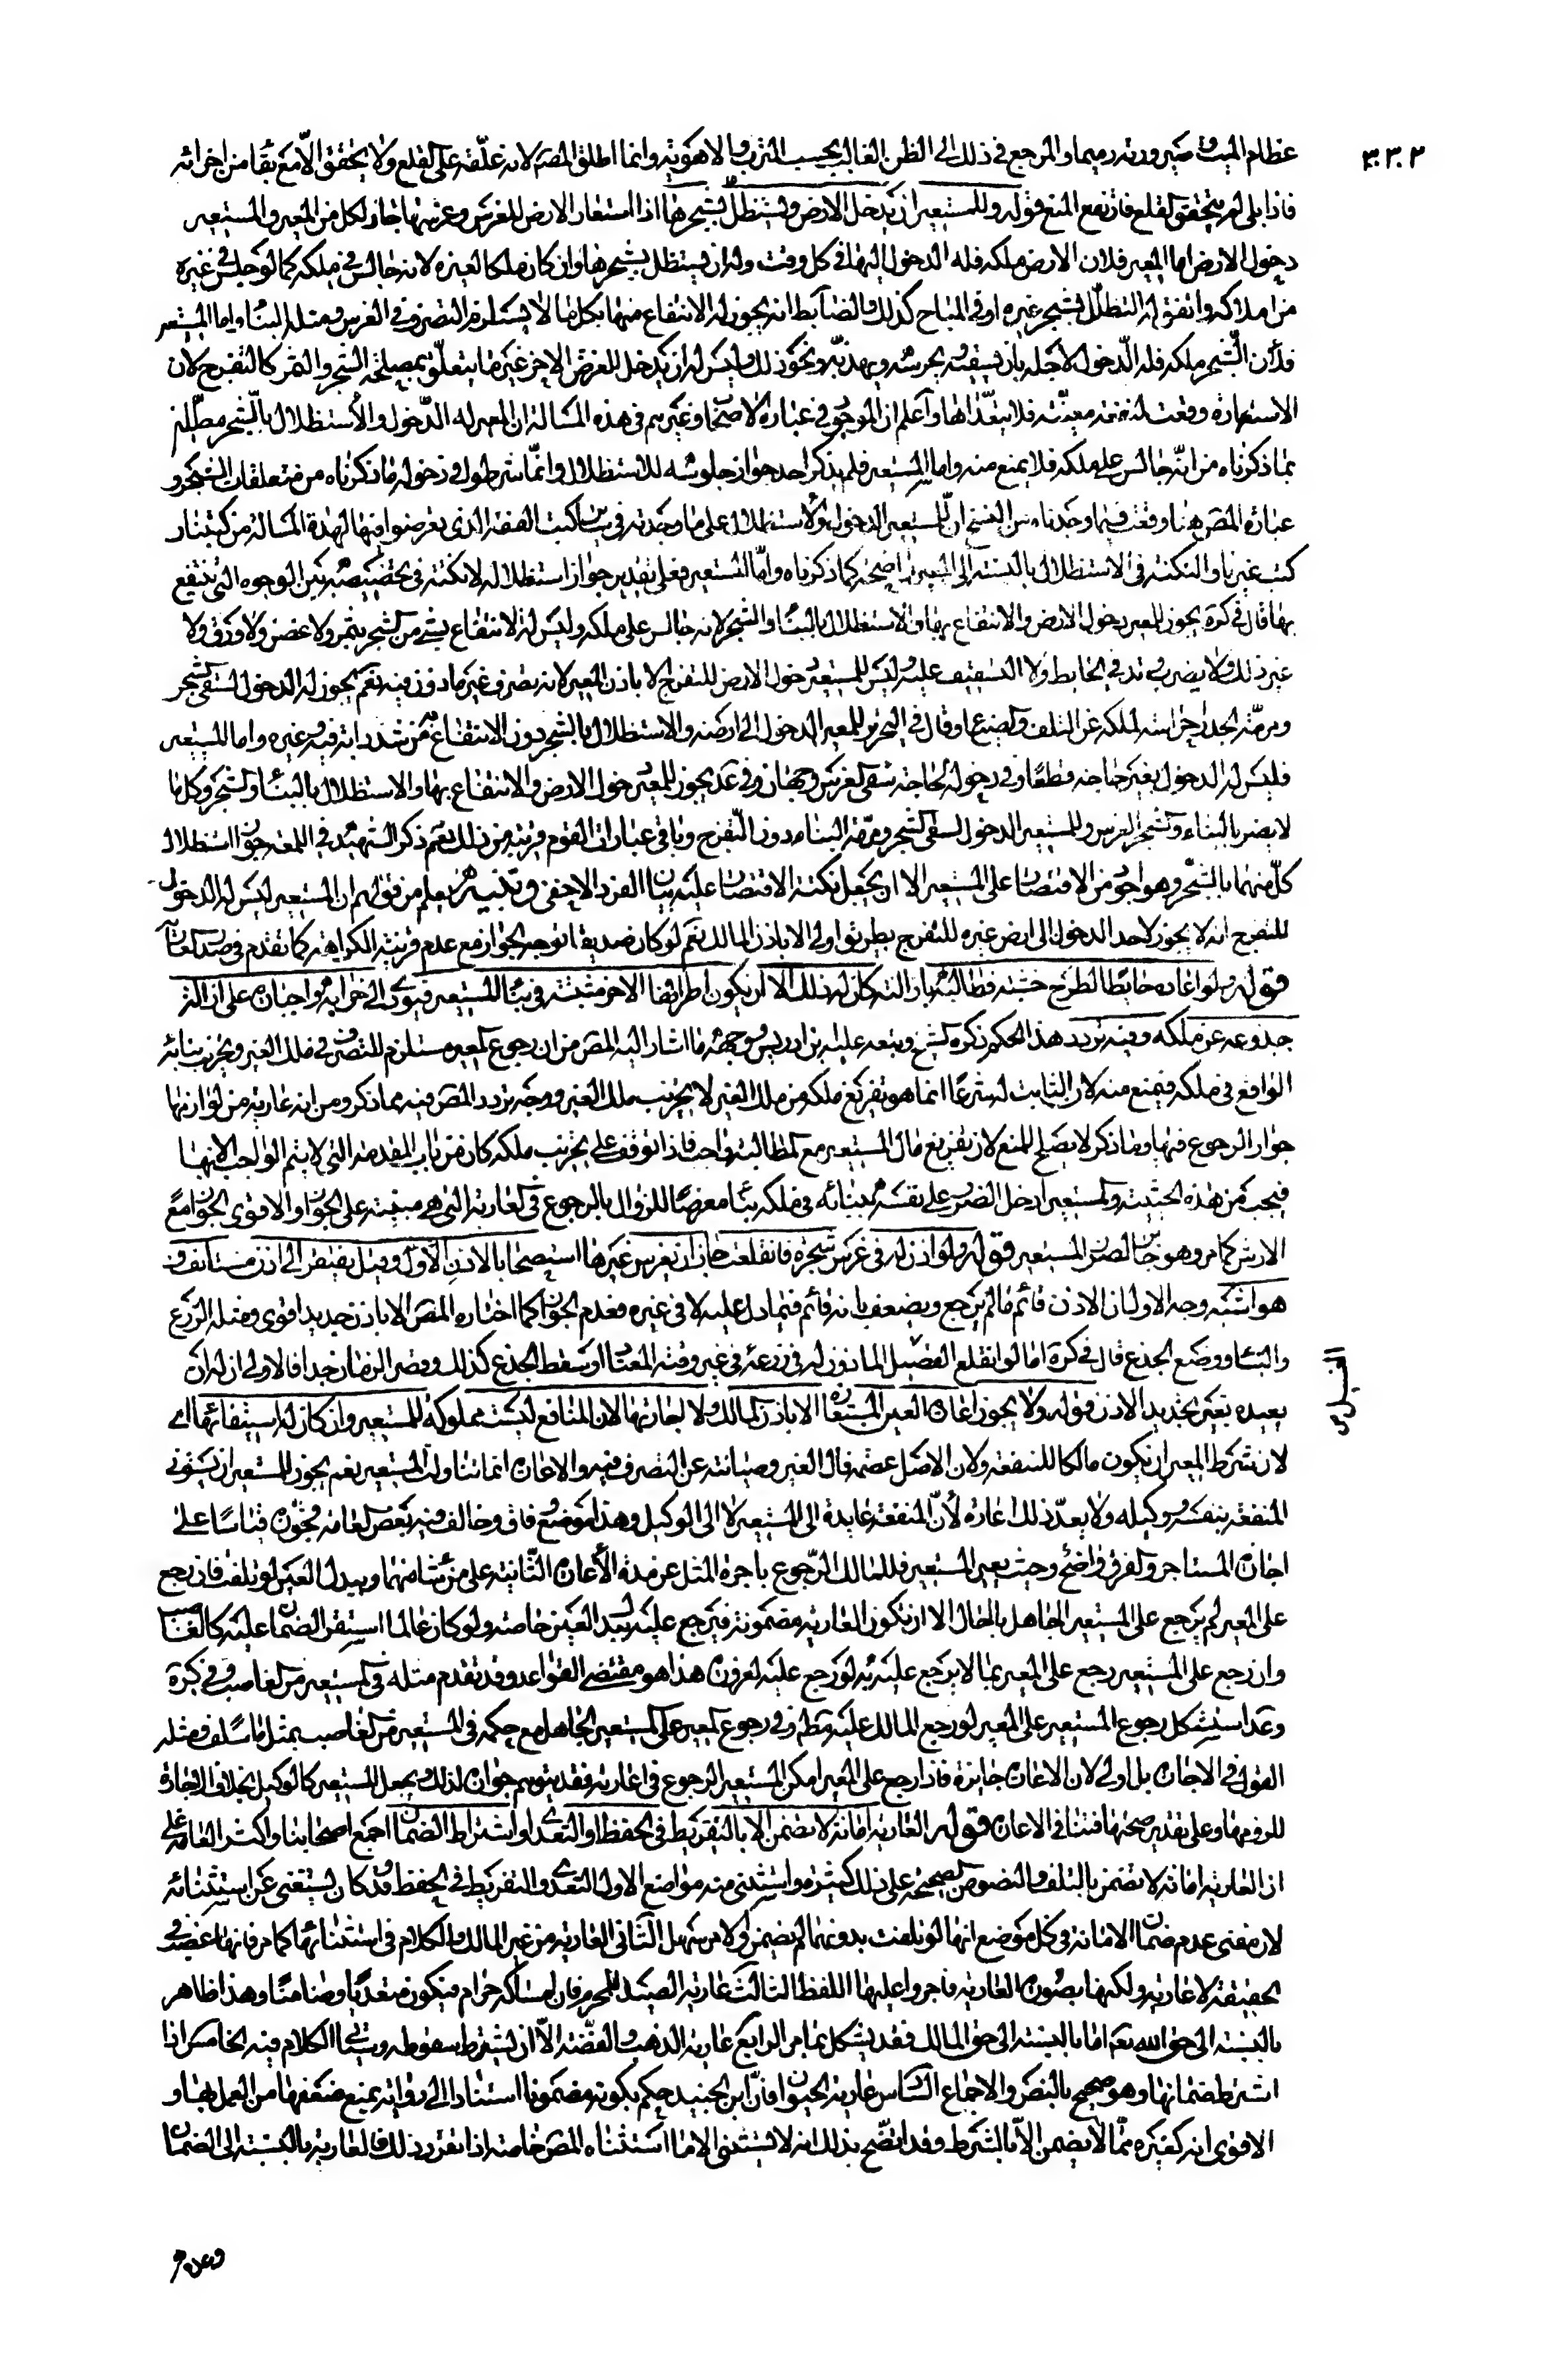 ٣٠٣٠٢
عظام الميت و صيرورته رميما والمرجع في ذلك الى الظن الغالب بحسب الترب والاهوية وانما اطلق المص لانه علّقه على القلع ولا يتحقق الّا مع بقاء من اجزائه
فاذا بلى لم يتحقق القلع فارتفع المنع قوله وللمستعير ان يدخل الارض ويستظلّ بشجرها اذا استعار الارض للغرس وغرسها جاز لكل من المعير والمستعير
دخول الارض اما المعير فلان الارض ملكه فله الدخول اليها في كل وقت وله ان يستظل بشجرها وان كان ملكا لغيره لانه جالس في ملكه كما لو جلس في غيره
من املاكه واتفق له التظلّل بشجر غيره او في المباح كذلك والضابط انه يجوز له الانتفاع منها بكل ما لا يستلزم التصرف في الغرس ومثله البناء واما المستعير
فلأن الشجر ملكه فله الدخول لاجله بان يسقيه ويحرسه ويهذبه ونحو ذلك وليس له ان يدخل للغرض الاخر غير ما يتعلّق بمصلحة الشجر والثمر كالتفرج لان
الاستعارة وقعت لمنفعة معيّنة فلا يتعدّاها واعلم ان الموجود في عبارة الاصحاب وغيرهم في هذه المسالة ان المعير له الدّخول والأستظلال بالّشجر معلّلين
بما ذكرناه من انّه جالس على ملكه فلا يمنع منه واما المستعير فلم يذكر احد جواز جلوسه للاستظلال وانّما شرطوا في دخوله ما ذكرناه من متعلقات الشجر و
عبارة المص هنا وقعت فيما وجدناه من النسخ ان للمستعير الدخول والأستظلال على ما وجدته في من كتب الفقه الذى تعرضوا فيها لهذه المسالة من كتبنا و
كتب غيرنا والنكتة في الاستظلال بالنسبة الى المعير واضحة كما ذكرناه وامّا المستعير فعلى تقدير جواز استظلاله لا نكتة في تخصيصه من بين الوجوه التى ينتفع
بها قال في كرة يجوز للمعير دخول الارض والانتفاع بها والاستظلال بالبناء والشجر لانه جالس على ملكه وليس له الانتفاع بشئ من الشجر بثمر ولا غصن ولا ورق ولا
غير ذلك ولا يضرب وتد في الحايط ولا التسقيف عليه وليس للمستعير دخول الارض للتفرج الا باذن المعير لانه تصرف غير ماذون فيه نعم يجوز له الدخول لسقى الشجر
ومرمّة الجدار حراسة لملكه عن التلف والضياع وقال في التحرير للمعير الدخول الى ارضه والاستظلال بالشجر دون الانتفاع من شد دابة فيه وغيره واما المستعير
فليس له الدخول بغير حاجة قطعًا وفي دخوله لحاجة سقى الغرس وجهان وفي عد يجوز للمعير دخول الارض والانتفاع بها والاستظلال بالبناء والشجر وكل ما
لا يضر بالبناء والشجر والغرس وللمستعير الدخول لسقى الشجر ومرمّة البناء دون التّفرج وباقي عبارات القوم قريبة من ذلك نعم ذكر الشهيد في اللمعة جواز استظلال
كلّ منهما بالشّجر وهو اجود من الاقتصار على المستعير الا ان يجعل نكتة الاقتصار عليه بيان الفرد الاخفى وتنبيه يعلم من قولهم ان المستعير ليس له الدخول
للتفرج انه لا يجوز لاحد الدخول الى ارض غيره للتفرج بطريق اولى الا باذن المالك نعم لو كان صديقا توجه الجواز مع عدم قرينة الكراهة كما تقدم في
قوله ولو اعاره حايطًا لطرح خشبة فطالبه بازالته كان له ذلك الا ان يكون اطرافها الاخر مثبتة في بناء المستعير فيودى الى خرابه واجباره على ازالة
جذوعه عن ملكه وفيه تردد هذا الحكم ذكره الشيخ وتبعه عليه ابن ادريس ووجهه ما اشار اليه المص من ان رجوع المعير مستلزم للتصرف في ملك الغير وتخريب بنائه
الواقع في ملكه فيمنع منه لان الثابت له شرعًا انما هو تفريغ ملكه من ملك الغير لا تخريب ملك الغير ووجه تردد المص فيه مما ذكر ومن انه عارية من لوازمها
جواز الرجوع فيها وما ذكر لا يصلح للمنع لان تفريغ مال المستعير مع المطالبة واجب فاذا توقف على تخريب ملكه كان من باب المقدمة التى لا يتم الواجب الا بها
فيجب من هذه الحيثية والمستعير ادخل الضرر على نفسه ببنائه في ملكه بناء معرضًا للزوال بالرجوع في العارية التى هي مبنية على الجواز والاقوى الجواز مع
الارش كما مر وهو جابر لضرر المستعير قوله ولو اذن له في غرس شجرة فانقلعت جاز ان يغرس غيرها استصحابا بالاذن الأول وقيل يفتقر الى اذن مستانف و
هو اشبه وجه الاول ان الاذن قائم ما لم يرجع ويضعف بانه قائم فيما دل عليه لا في غيره فعدم الجواز كما اختاره المص الا باذن جديد اقوى ومثله الزرع
والبناء ووضع الجذع قال في كرة اما لو انقلع الفسيل الماذون له في زرعه في غير وقته المعتاد او سقط الجذع كذلك وقصر الزمان جدا فالاولى ان له ان
يعيده بغير تجديد الاذن قوله ولا يجوز اعارة العين المستعارة الا باذن المالك ولا اجارتها لان المنافع ليست مملوكة للمستعير وان كان له استيفائها
لان شرط المعير ان يكون مالكا للمنفعة ولان الاصل عصمة مال الغير وصيانته عن التصرف فيه والاعارة انما تناولت المستعير نعم يجوز للمستعير ان يستوفى
المنفعة بنفسه ووكيله ولا يعدّ ذلك اعارة لأنّ المنفعة عايدة الى المستعير لا الى الوكيل وهذا موضع وفاق وخالف فيه بعض العامة فجوزه قياسًا على
اجارة المستاجر والفرق واضح وحيث يعير المستعير فللمالك الرّجوع باجرة المثل عن مدة الأعارة الثّانية على من شاء منهما وببدل العين لو تلفت فان رجع
على المعير لم يرجع على المستعير الجاهل بالحال الا ان تكون العارية مضمونة فيرجع عليه ببدل العين خاصة ولو كان عالما استقر الضمان عليه كالغاصب
وان رجع على المستعير رجع على المعير بما لا يرجع عليه به لو رجع عليه لغروره هذا هو مقتضى القواعد وقد تقدم مثله في المستعير من الغاصب وفي كرة
وعد استشكل رجوع المستعير على المعير لو رجع المالك عليه مطم وفي رجوع المعير على المستعير الجاهل مع حكمه في المستعير من الغاصب بمثل ما سلف ومثله
القول في الاجارة بل اولى لان الاعارة جايزة فاذا رجع على المعير امكن المستعير الرجوع في اعارته فقد يتوهم جوازه لذلك ويجعل المستعير كالوكيل بخلاف الاجارة
للزومها وعلى تقدير صحتها في الاعارة قوله العارية امانة لا تضمن الا بالتفريط في الحفظ او التعدى او اشتراط الضمان اجمع اصحابنا واكثر العامة على
ان العارية امانة لا تضمن بالتلف والنصوص الصحيحة على ذلك كثيرة واستثنى منه مواضع الاول التعدى والتفريط في الحفظ وقد كان يستغنى عن استثنائه
لان معنى عدم ضمان الامانة في كل موضع انها لو تلفت بدونهما لم يضمن والامر سهل الثّانى العارية من غير المالك والكلام في استثنائها كما مر فانها غصب في
الحقيقة لا عارية ولكنها بصورة العارية فاجروا عليها اللفظ الثالث عارية الصيد للمحرم فان امساكه حرام فيكون متعديًا وضامنًا وهذا ظاهر
بالنسبة الى حق الله تعم اما بالنسبة الى حق المالك فقد يشكل بما مر الرابع عارية الذهب والفضّة الّا ان يشترط سقوطه وسياتى الكلام فيه الخامس اذا
اشترط ضمانها وهو صحيح بالنص والاجماع السادس عارية الحيوان فانّ ابن الجنيد حكم بكونه مضمونا استنادا الى رواية يمنع ضعفها من العمل بها و
الاقوى انه كغيره ممّا لا يضمن الّا بالشرط وقد اتضّح بذلك انه لا يستثنى الا ما استثناه المص خاصة اذا تقرر ذلك فالعارية بالنسبة الى الضمان